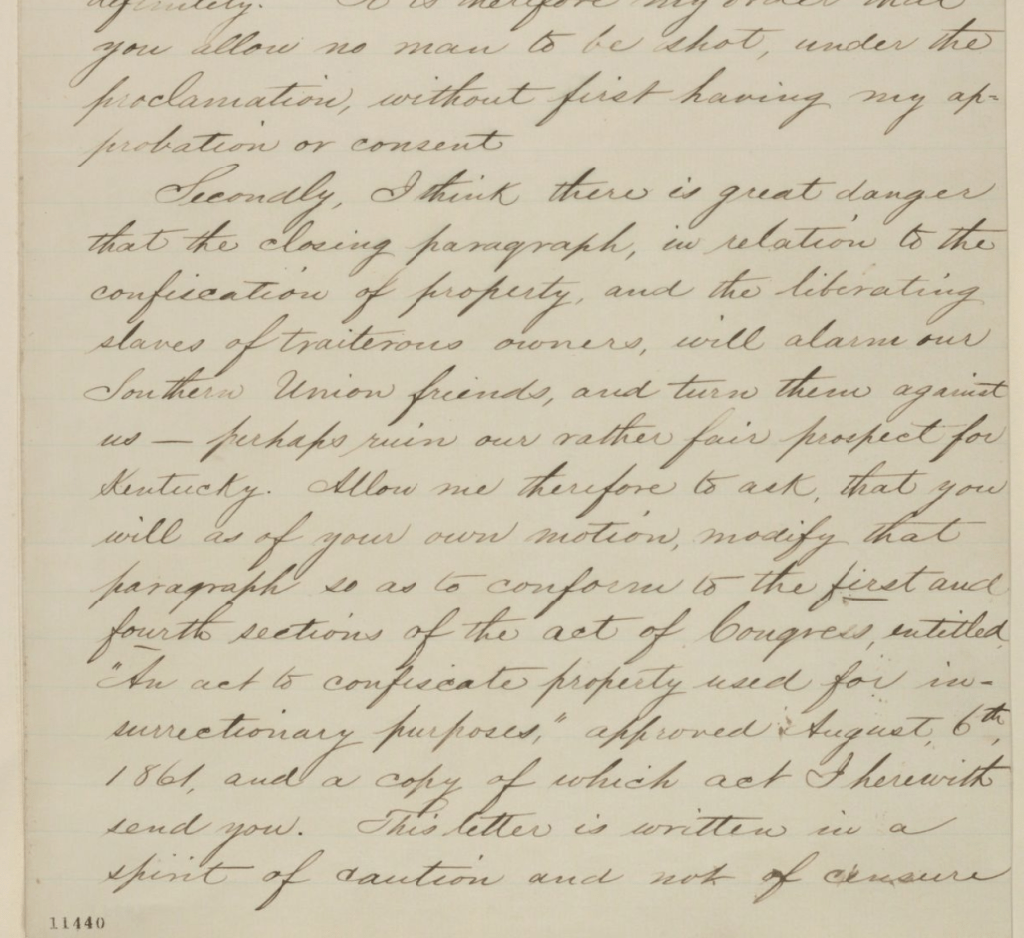 definitely. It is therefore my order that
you allow no man to be shot, under the
proclamation, without first having my ap-
probation or consent
Secondly, I think there is great danger
that the closing paragraph, in relation to the
confiscation of property, and the liberating
slaves of traiterous owners, will alarm our
Southern Union friends, and turn them against
us — perhaps ruin our rather fair prospect for
Kentucky. Allow me therefore to ask, that you
will as of your own motion, modify that
paragraph so as to conform to the first and
fourth sections of the act of Congress, entitled,
"An act to confiscate property used for in-
surrectionary purposes," approved August, 6th,
1861, and a copy of which act I herewith
send you. This letter is written in a
spirit of caution and not of censure
11440